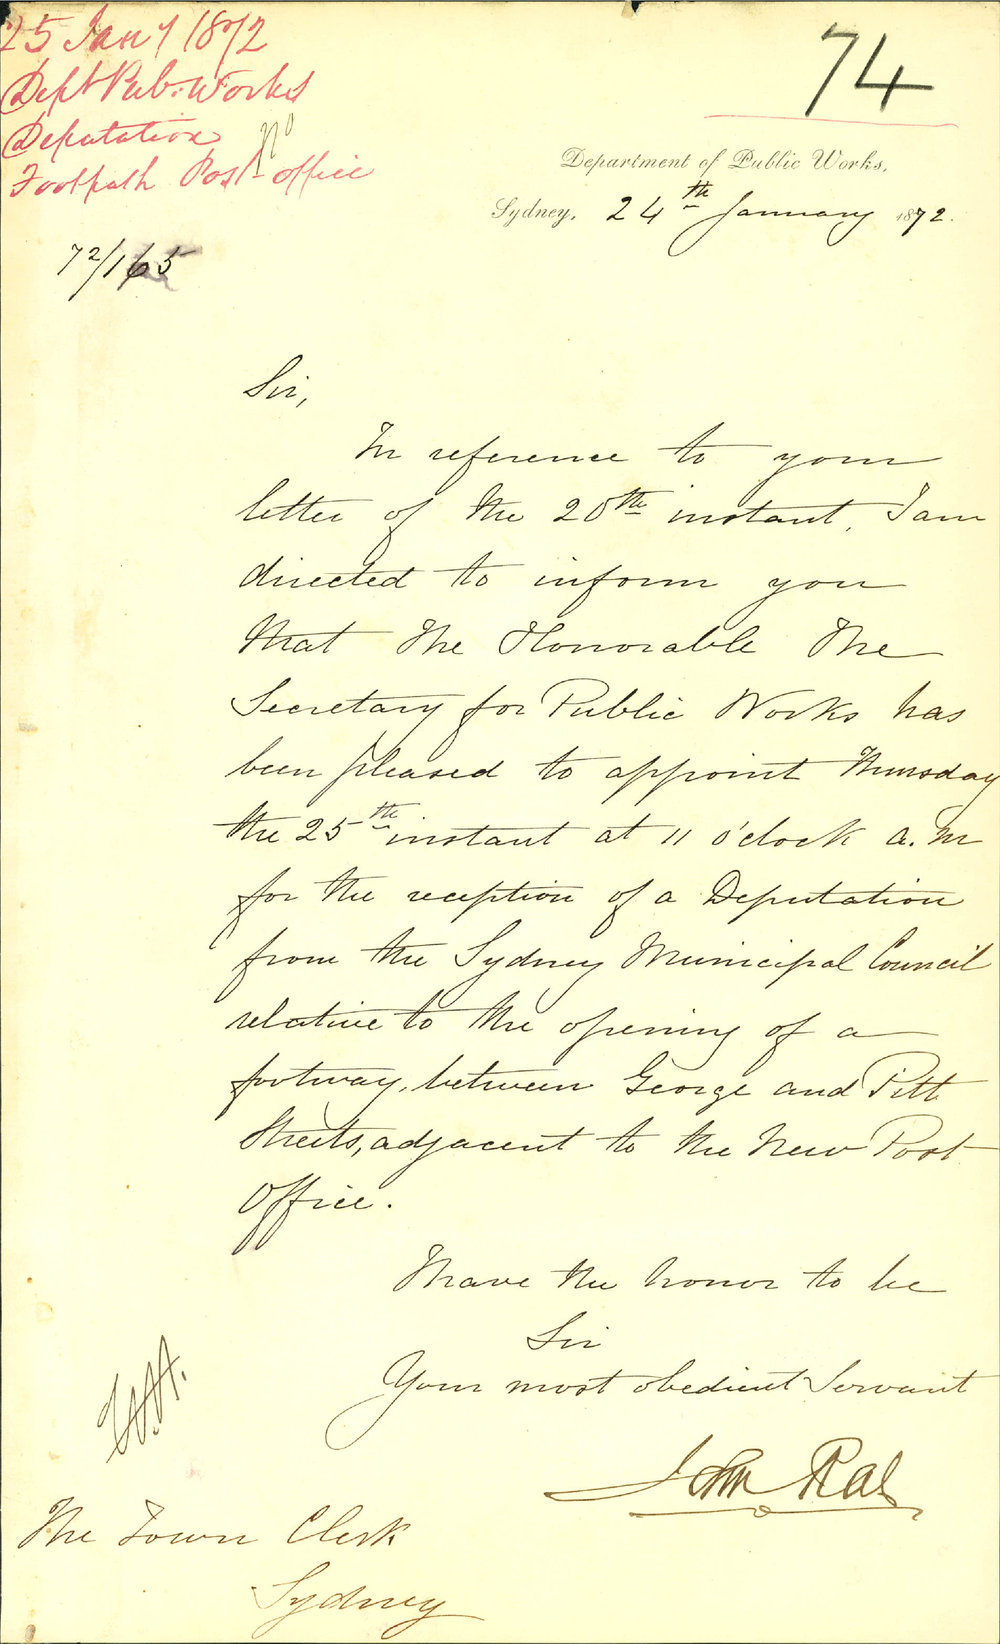 25 Jany 1872
Dept Pub. Works
Deputation
Footpath Post-office
74
72/165
Department of Public Works,
Sydney, 24th January 1872.
Sir,
In reference to your
letter of the 20th instant, I am
directed to inform you
that The Honorable The
Secretary for Public Works has
been pleased to appoint Thursday
the 25th instant at 11 o'clock a.m
for the reception of a Deputation
from the Sydney Municipal Council
relative to the opening of a
footway, between George and Pitt
Streets, adjacent to the New Post
Office.
I have the honor to be
Sir
Your most obedient Servant
John Rae
The Town Clerk
Sydney